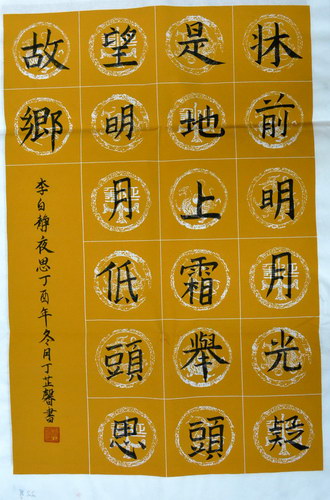 牀前明月光疑
是地上霜舉頭
望明月低頭思
故鄉
李白靜夜思丁酉年冬月丁芷馨書